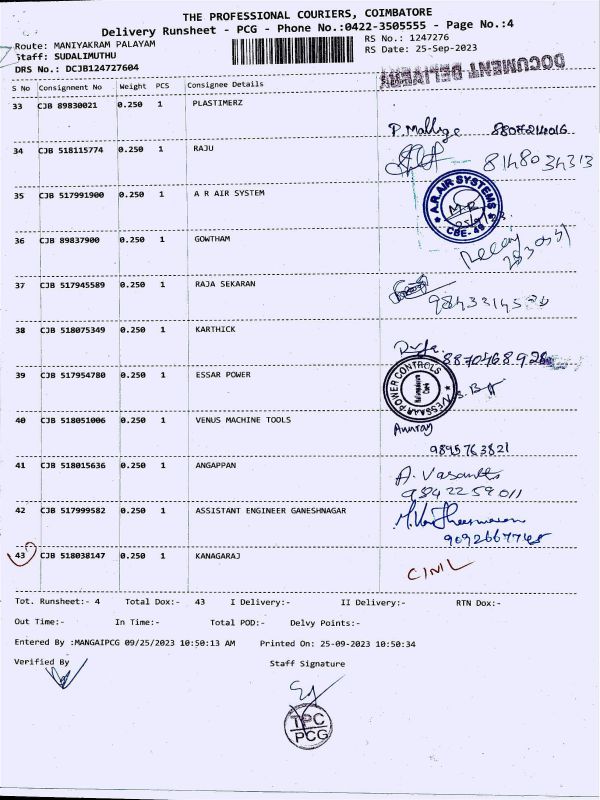 THE PROFESSIONAL COURIERS, COIMBATORE
Delivery Runsheet - PCG - Phone No.:0422-3505555 - Page No.:4
Route: MANIYAKRAM PALAYAM RS No.: 1247276
Staff: SUDALIMUTHU RS Date: 25-Sep-2023
DRS No.: DCJB124727604
DOCUMENT DELIVERY
S No Consignment No Weight PCS Consignee Details
33 CJB 89830021 0.250 1 PLASTIMERZ
34 CJB 518115774 0.250 1 RAJU
8148034313
35 CJB 517991900 0.250 1 A R AIR SYSTEM
A.R.AIR SYSTEMS
CBE-49
36 CJB 89837900 0.250 1 GOWTHAM
37 CJB 517945589 0.250 1 RAJA SEKARAN
38 CJB 518075349 0.250 1 KARTHICK
39 CJB 517954780 0.250 1 ESSAR POWER
POWER CONTROLS
40 CJB 518051006 0.250 1 VENUS MACHINE TOOLS
9895763821
41 CJB 518015636 0.250 1 ANGAPPAN
42 CJB 517999582 0.250 1 ASSISTANT ENGINEER GANESHNAGAR
43 CJB 518038147 0.250 1 KANAGARAJ
Tot. Runsheet:- 4 Total Dox:- 43 I Delivery:- II Delivery:- RTN Dox:-
Out Time:- In Time:- Total POD:- Delvy Points:-
Entered By :MANGAIPCG 09/25/2023 10:50:13 AM Printed On: 25-09-2023 10:50:34
Verified By Staff Signature
TPC
PCG